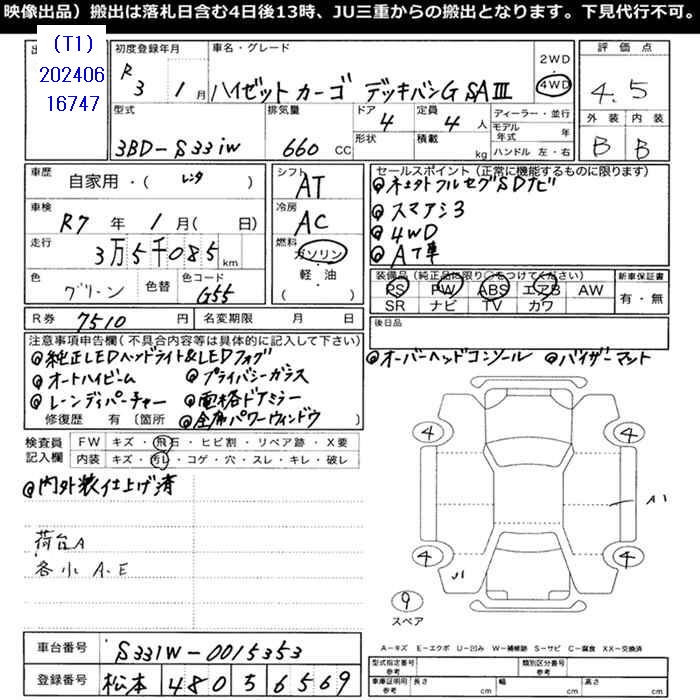 映像出品）搬出は落札日含む4日後13時、JU三重からの搬出となります。下見代行不可。
(T1)
202406
16747
初度登録年月
R3 1月
車名・グレード
ハイゼットカーゴ デッキバンG SAⅢ
2WD
4WD
評価点
4.5
外装 内装
B B
型式
3BD-S331W
排気量
660 CC
ドア
4
形状
定員
4 人
積載
kg
ディーラー・並行
モデル年式 年
ハンドル 左・右
車歴
自家用・( レンタ )
車検
R7年 1月( 日)
走行
3万5千085 km
色
グリーン
色替
色コード
G55
シフト
AT
冷房
AC
燃料
ガソリン
軽・油
( )
セールスポイント（正常に機能するものに限ります）
フルセグSDナビ
スマアシ3
4WD
AT車
装備品（純正品に限り○をつけてください）
PS PW ABS エアB AW
SR ナビ TV カワ
新車保証書
有・無
R券 7510 円
名変期限 月 日
後日品
注意事項申告欄(不具合内容等は具体的に記入して下さい)
純正LEDヘッドライト&LEDフォグ
オートハイビーム プライバシーガラス
電格ドアミラー
修復歴 有〔箇所 全席パワーウィンドウ 〕
オーバーヘッドコンソール バイザーマット
検査員記入欄
FW キズ・飛石・ヒビ割・リペア跡・X要
内装 キズ・汚レ・コゲ・穴・スレ・キレ・破レ
内外装仕上げ済
荷台A
各小 A.E
4 4
A1
4 4
9
スペア
A－キズ E－エクボ U－凹み W－補修跡 S－サビ C－腐食 XX－交換済
車台番号 S331W-0015353
登録番号 松本 480 56569
型式指定番号 参考
類別区分番号 参考
車庫証明用 参考
長さ cm 幅 cm 高さ cm